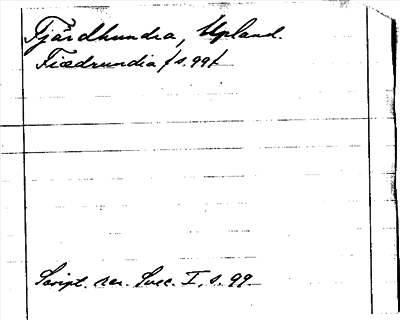 Fjärdhundra, Upland.
Fiædrundia / s. 99 /
Script. rer. Svec. I, s. 99.